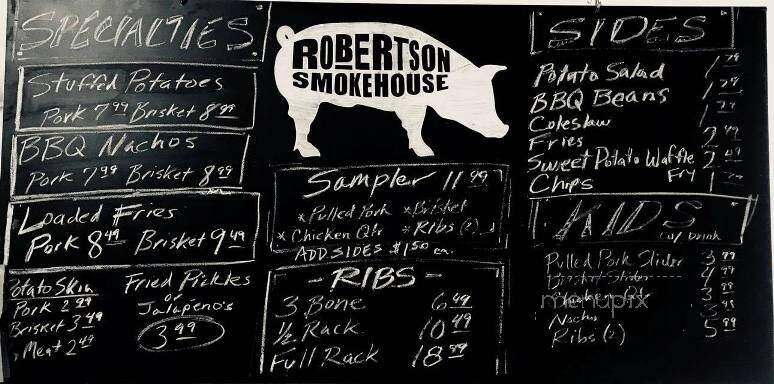 SPECIALTIES
Stuffed Potatoes
Pork 7.99 Brisket 8.99
BBQ Nachos
Pork 7.99 Brisket 8.99
Loaded Fries
Pork 8.49 Brisket 9.49
Potato Skin
Pork 2.99
Brisket 3.49
Meat 2.49
Fried Pickles
or
Jalapeno's
3.99
ROBERTSON
SMOKEHOUSE
Sampler 11.99
*Pulled Pork *Brisket
*Chicken Qtr *Ribs (2)
ADD SIDES $1.50 ea.
-RIBS-
3 Bone 6.49
1/2 Rack 10.49
Full Rack 18.99
SIDES
Potato Salad 1.79
BBQ Beans 1.79
Coleslaw 1.79
Fries 2.49
Sweet Potato Waffle Fry 2.49
Chips
KIDS
w/ Drink
Pulled Pork Slider 3.99
Brisket Slider 4.99
Nacho
Ribs (2) 5.99
menupix